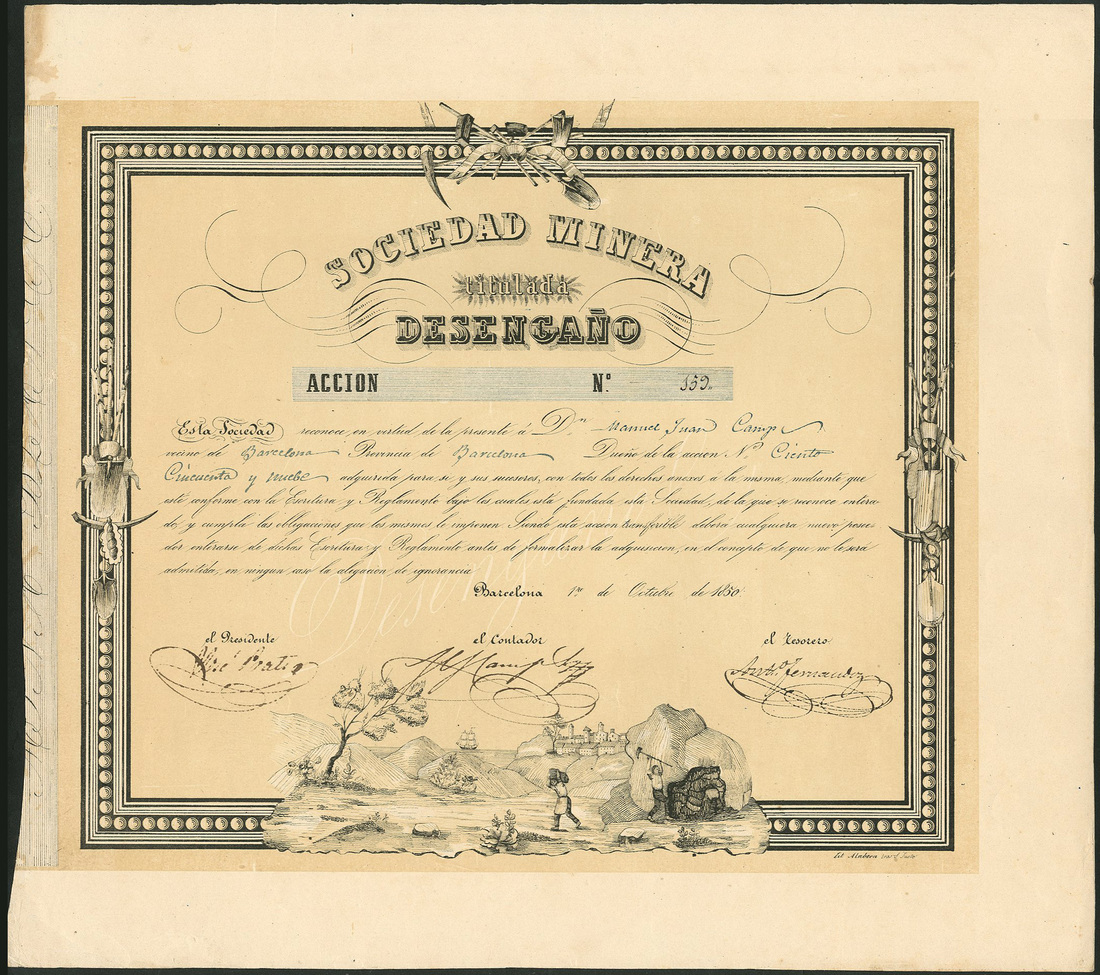 SOCIEDAD MINERA
titulada
DESENGAÑO
ACCION Nº 159.
Esta Sociedad reconoce, en virtud de la presente á Dn. Manuel Juan Camps
vecino de Barcelona Provincia de Barcelona Dueño de la accion Nº Ciento
Cincuenta y nuebe adquirida para si, y sus sucesores, con todos los derechos anexos á la misma, mediante que
esté conforme con la Escritura, y Reglamento bajo los cuales está fundada esta Sociedad, de la que se reconoce entera
do, y cumpla las obligaciones que los mismos le imponen. Siendo esta accion transferible deberá cualquiera nuevo posee-
dor enterarse de dichos Escritura y Reglamento antes de formalizar la adquisicion, en el concepto de que no le será
admitida, en ningun caso la alegacion de ignorancia
Barcelona 1ro de Octubre de 1850.
el Presidente el Contador el Tesorero
Anto. Fernandez
Desengaño
Lit. Mabon